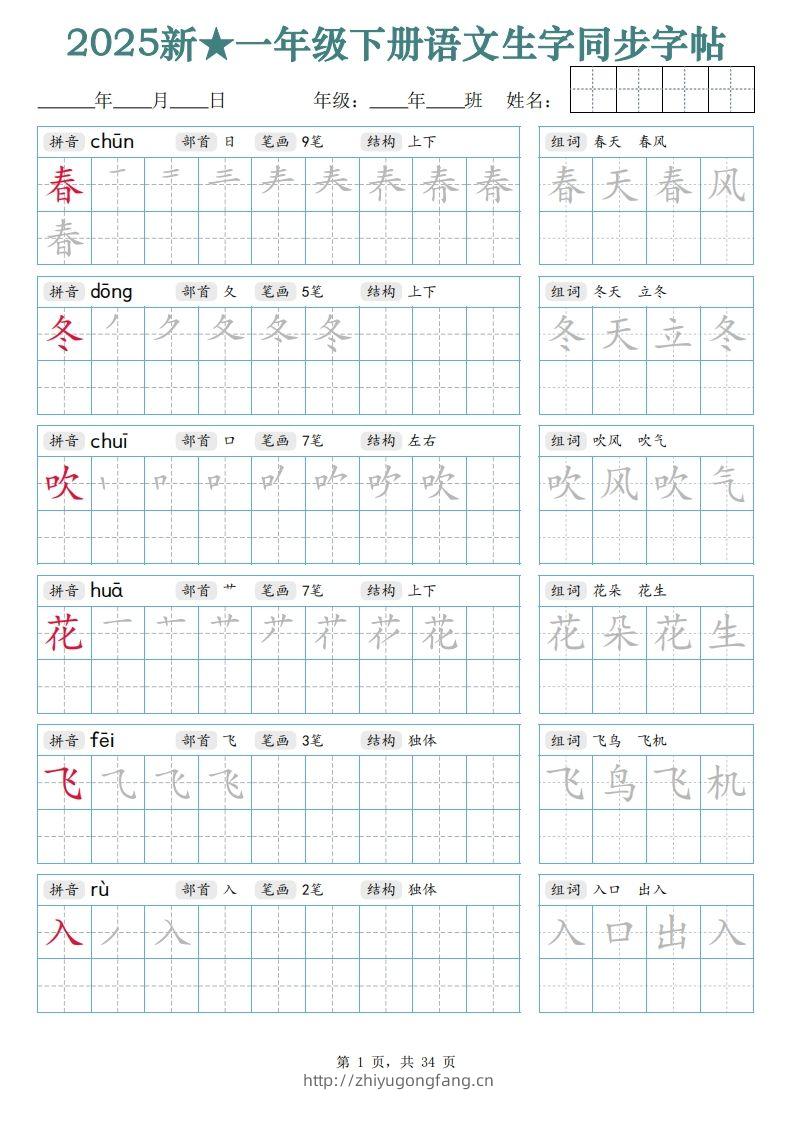 2025新★一年级下册语文生字同步字帖
______年____月____日 年级：____年____班 姓名：
拼音 chūn 部首 日 笔画 9笔 结构 上下 组词 春天 春风
春 春 天 春 风
春
拼音 dōng 部首 夂 笔画 5笔 结构 上下 组词 冬天 立冬
冬 冬 天 立 冬
拼音 chuī 部首 口 笔画 7笔 结构 左右 组词 吹风 吹气
吹 吹 风 吹 气
拼音 huā 部首 艹 笔画 7笔 结构 上下 组词 花朵 花生
花 花 朵 花 生
拼音 fēi 部首 飞 笔画 3笔 结构 独体 组词 飞鸟 飞机
飞 飞 鸟 飞 机
拼音 rù 部首 入 笔画 2笔 结构 独体 组词 入口 出入
入 入 口 出 入
第 1 页，共 34 页
http://zhiyugongfang.cn